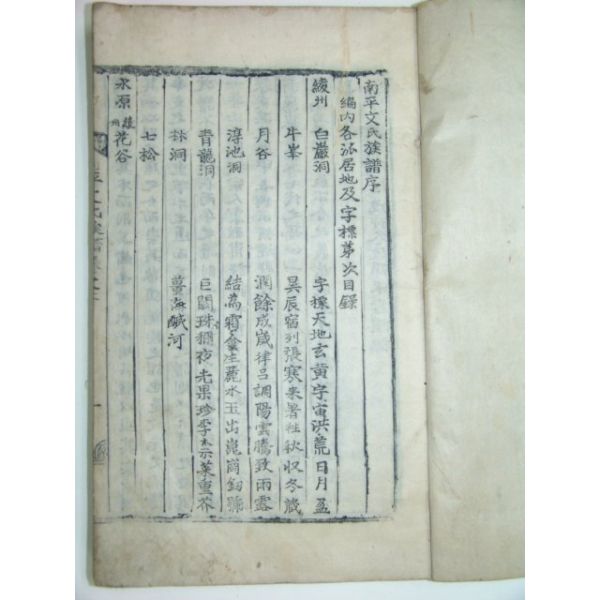 南平文氏族譜序
編內各派居地及字標第次目錄
綾州 白巖洞 字標天地玄黃字宙洪荒日月盈
牛峯 昃辰宿列張寒來暑往秋收冬藏
月谷 潤餘成歲律呂調陽雲騰致雨露
淳池洞 結為霜金生麗水玉出崑崗釰號
青龍洞 巨闕珠稱夜光果珍李柰菜重芥
林洞 薑海醎河
七松
永原 花谷